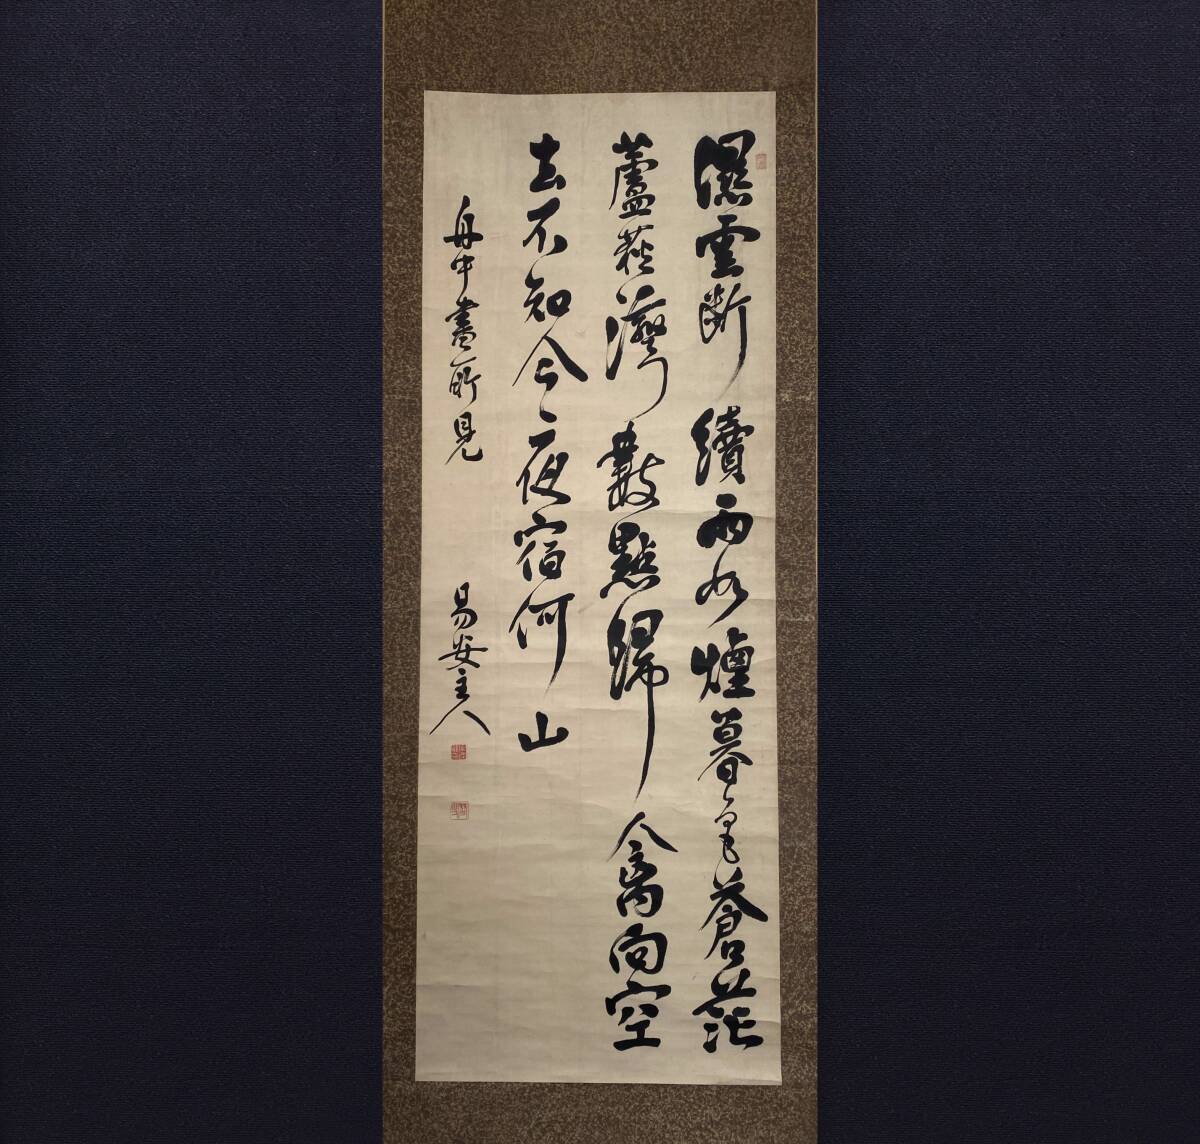 濕雲斷續雨如煙暮色蒼茫
蘆荻灣數點歸禽向空
去不知今夜宿何山
舟中書所見
易安主人